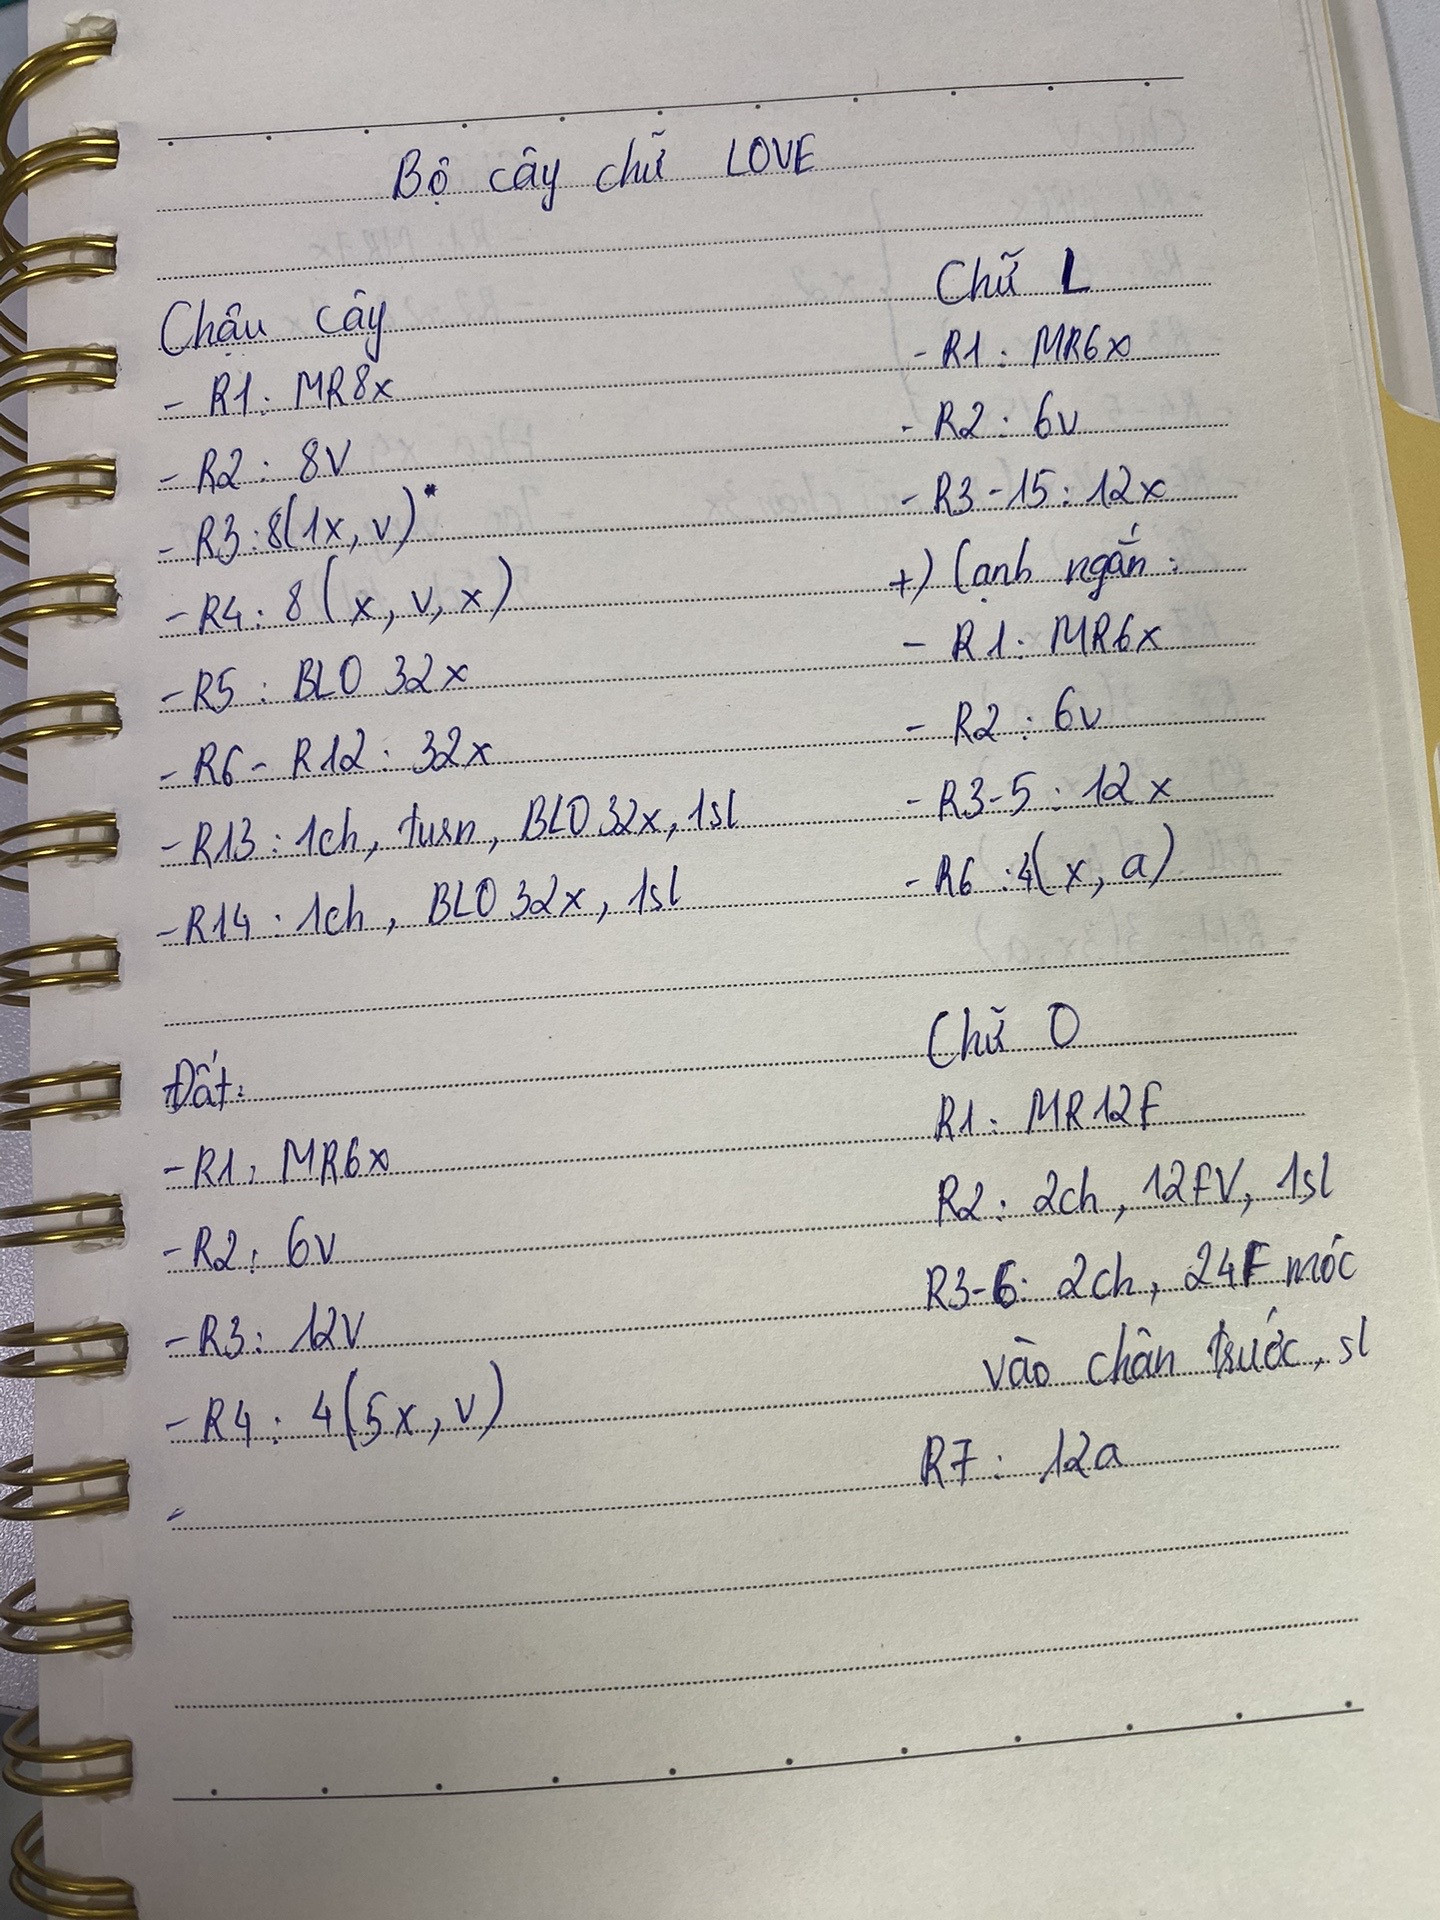 Bộ cây chữ LOVE
Chậu cây
- R1: MR8x
- R2: 8V
- R3: 8(1x, v)*
- R4: 8(x, v, x)
- R5: BLO 32x
- R6 - R12: 32x
- R13: 1ch, turn, BLO 32x, 1sl
- R14: 1ch, BLO 32x, 1sl
Đất:
- R1: MR6x
- R2: 6v
- R3: 12V
- R4: 4(5x, v)
Chữ L
- R1: MR6x
- R2: 6v
- R3-15: 12x
+) Cạnh ngắn:
- R1: MR6x
- R2: 6v
- R3-5: 12x
- R6: 4(x, a)
Chữ O
R1: MR12F
R2: 2ch, 12FV, 1sl
R3-6: 2ch, 24F móc
vào chân trước, sl
R7: 12a